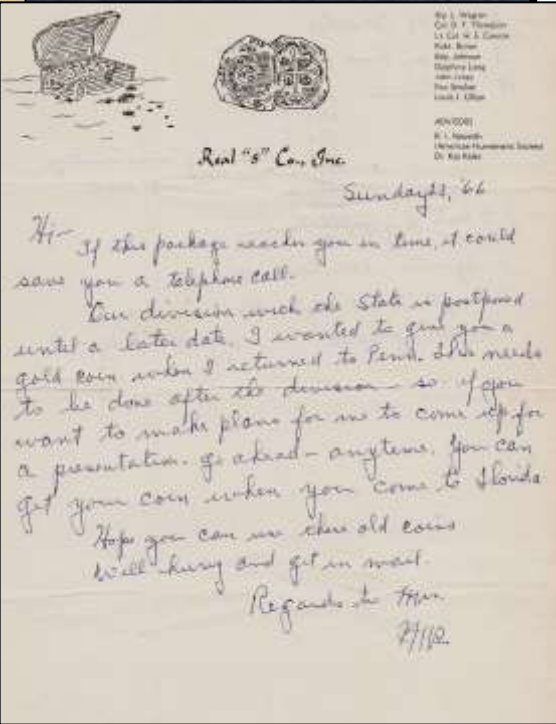 Kip L. Wagner
Col. D. F. Thompson
Lt. Col. H. E. Cannon
Robt. Brown
Ray Johnson
Delphine Long
John Jones
Lou Ullian
ADVISORS
R. I. Nesmith
(American Numismatic Society)
Real "8" Co., Inc.
Sunday, '66
Hi -
If this package reaches you in time, it could
save you a telephone call.
Our division with the State is postponed
until a later date. I wanted to give you a
gold coin when I returned to Penn. This needs
to be done after the division - so if you
want to make plans for me to come up for
a presentation - go ahead - anytime. You can
get your coin when you come to Florida
Hope you can use these old coins
Will hurry and get in mail.
Regards to Mrs.